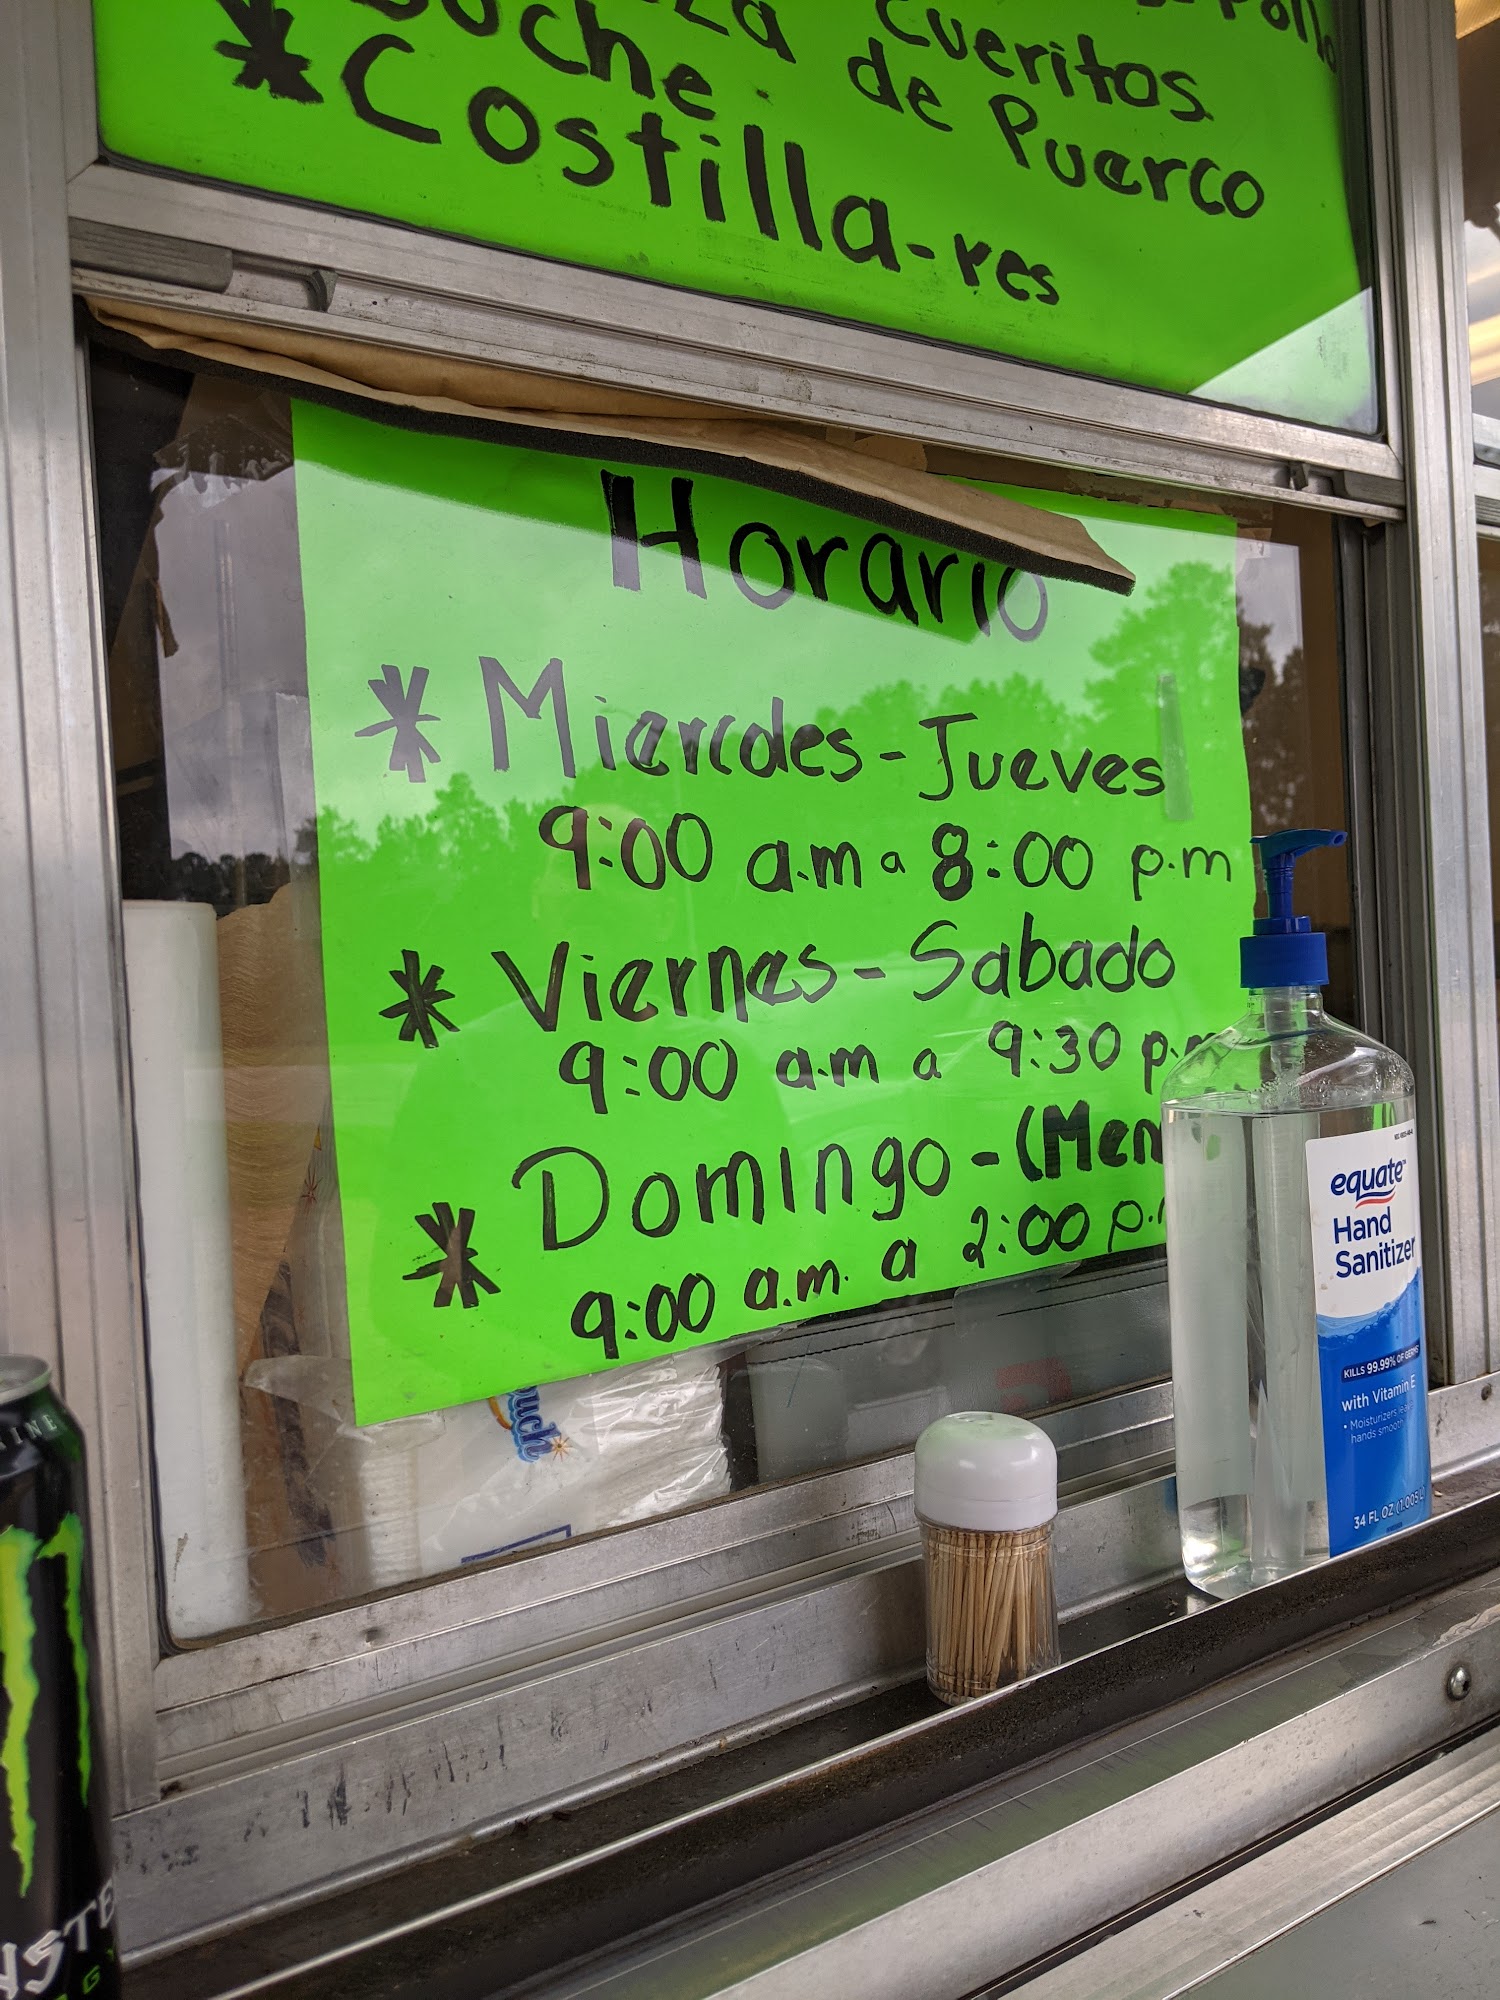 Cueritos
de Puerco
*Costilla-res
Horario
* Miercoles - Jueves
9:00 a.m a 8:00 p.m
* Viernes - Sabado
9:00 a.m a 9:30 p.m
* Domingo - (Men
9:00 a.m. a 2:00 p.
equate
Hand
Sanitizer
KILLS 99.99% OF GERMS
with Vitamin E
• Moisturizers
hands smooth
34 FL OZ (1.005 L)